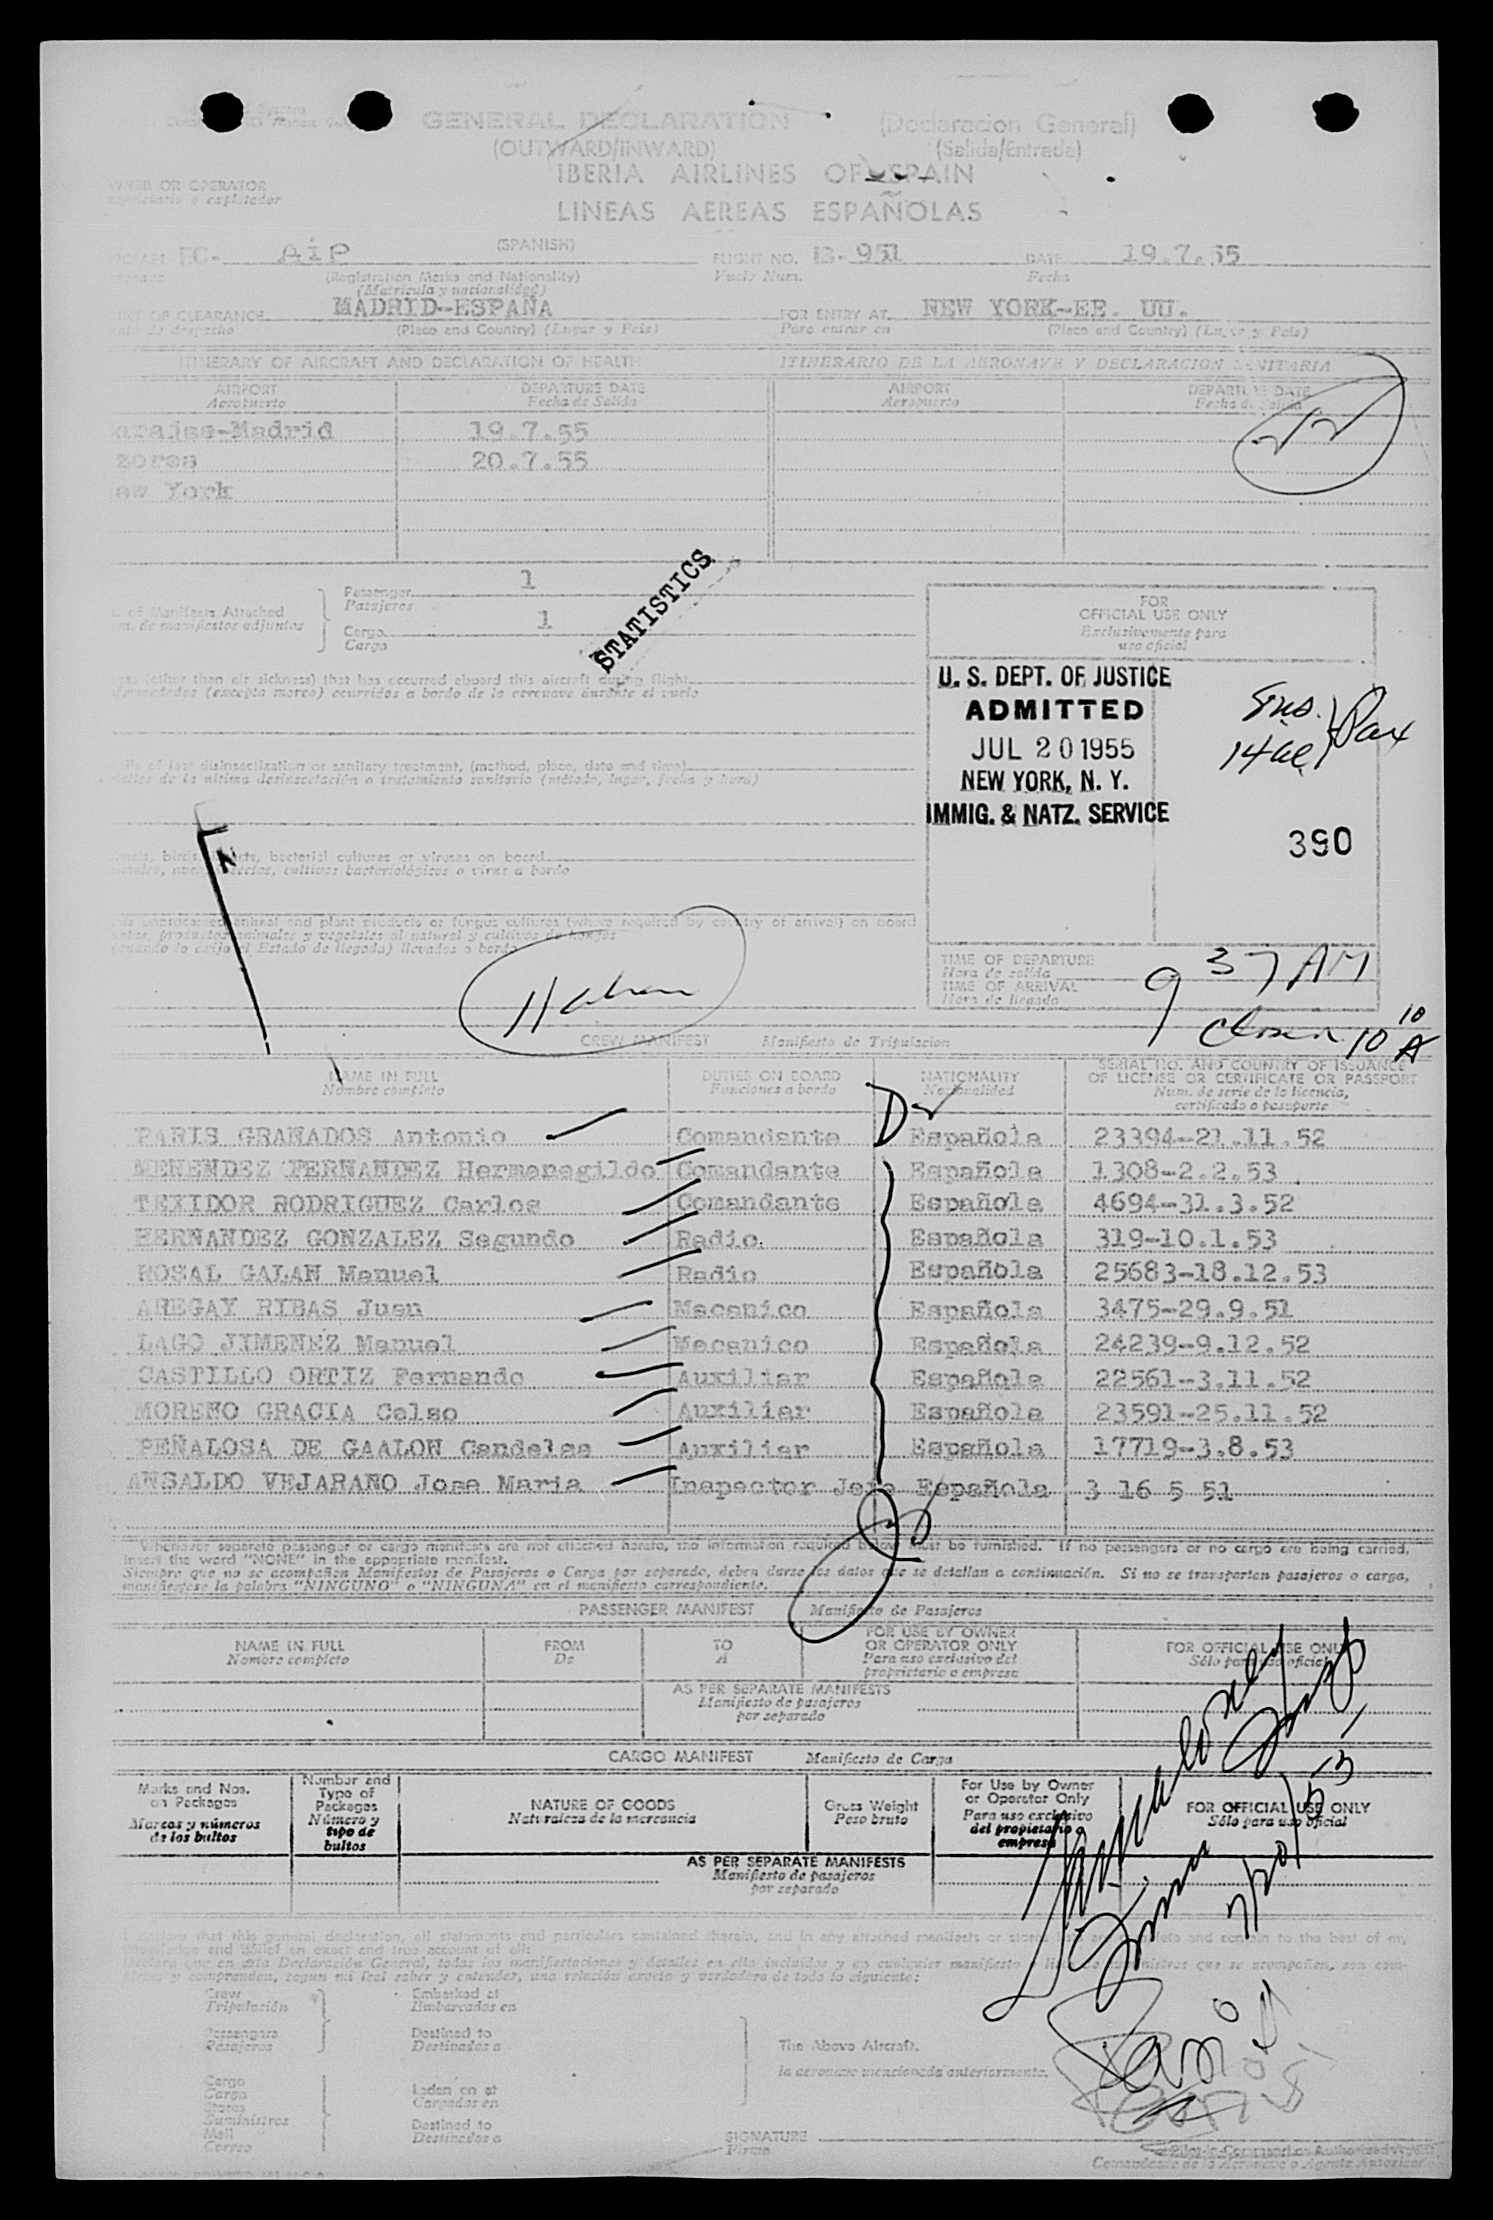 GENERAL DECLARATION (Declaracion General)
(OUTWARD/INWARD) (Salida/Entrada)
IBERIA AIRLINES OF SPAIN
LINEAS AEREAS ESPAÑOLAS
OR OPERATOR
o explotador
EC- AiP (SPANISH) FLIGHT NO. IB- 951 DATE 19.7.55
(Registration Marks and Nationality) Vuelo Num. Fecha
(Matricula y nacionalidad)
OF CLEARANCE MADRID--ESPAÑA FOR ENTRY AT NEW YORK-EE. UU.
de despacho (Place and Country) (Lugar y Pais) Para entrar en (Place and Country) (Lugar y Pais)
ITINERARY OF AIRCRAFT AND DECLARATION OF HEALTH ITINERARIO DE LA AERONAVE Y DECLARACION SANITARIA
AIRPORT DEPARTURE DATE AIRPORT DEPARTURE DATE
Aeropuerto Fecha de Salida Aeropuerto Fecha de Salida
arajas-Madrid 19.7.55
zores 20.7.55
ew York
Passenger 1
Pasajeros
of Manifests Attached
de manifiestos adjuntos
Cargo 1
Carga
STATISTICS
FOR
OFFICIAL USE ONLY
Exclusivamente para
uso oficial
(other than air sickness) that has occurred aboard this aircraft during flight
(excepto mareo) ocurridos a bordo de la aeronave durante el vuelo
U. S. DEPT. OF JUSTICE
ADMITTED
JUL 20 1955
NEW YORK, N. Y.
IMMIG. & NATZ. SERVICE
Pax
390
of last disinsectization or sanitary treatment, (method, place, date and time)
de la ultima desinsectación o tratamiento sanitario (método, lugar, fecha y hora)
birds, insects, bacterial cultures or viruses on board
insectos, cultivos bacteriológicos o virus a bordo
animal and plant products or fungus cultures (where required by country of arrival) on board
productos animales y vegetales al natural y cultivos de hongos
(cuando lo exija el Estado de llegada) llevados a bordo
TIME OF DEPARTURE
Hora de salida
TIME OF ARRIVAL 9 37 AM
Hora de llegada
CREW MANIFEST Manifiesto de Tripulacion
NAME IN FULL DUTIES ON BOARD NATIONALITY SERIAL NO. AND COUNTRY OF ISSUANCE
Nombre completo Funciones a bordo Nacionalidad OF LICENSE OR CERTIFICATE OR PASSPORT
Num. de serie de la licencia,
certificado o pasaporte
PARIS GRANADOS Antonio Comandante Española 23394-21.11.52
MENENDEZ FERNANDEZ Hermenegildo Comandante Española 1308-2.2.53
TEXIDOR RODRIGUEZ Carlos Comandante Española 4694-31.3.52
HERNANDEZ GONZALEZ Segundo Radio Española 319-10.1.53
ROSAL GALAN Manuel Radio Española 25683-18.12.53
AREGAY RIBAS Juan Mecanico Española 3475-29.9.51
LAGO JIMENEZ Manuel Mecanico Española 24239-9.12.52
CASTILLO ORTIZ Fernando Auxiliar Española 22561-3.11.52
MORENO GRACIA Celso Auxiliar Española 23591-25.11.52
PEÑALOSA DE GAALON Candelas Auxiliar Española 17719-3.8.53
ANSALDO VEJARANO Jose Maria Inspector Jefe Española 3 16 5 51
Whenever separate passenger or cargo manifests are not attached hereto, the information required below must be furnished. If no passengers or no cargo are being carried,
insert the word "NONE" in the appropriate manifest.
Siempre que no se acompañen Manifiestos de Pasajeros o Carga por separado, deben darse los datos que se detallan a continuación. Si no se transportan pasajeros o carga,
manifiestese la palabra "NINGUNO" o "NINGUNA" en el manifiesto correspondiente.
PASSENGER MANIFEST Manifiesto de Pasajeros
NAME IN FULL FROM TO FOR USE BY OWNER FOR OFFICIAL USE ONLY
Nombre completo De A OR OPERATOR ONLY Sólo para uso oficial
Para uso exclusivo del
propietario o empresa
AS PER SEPARATE MANIFESTS
Manifiesto de pasajeros
por separado
CARGO MANIFEST Manifiesto de Carga
Marks and Nos. Number and NATURE OF GOODS Gross Weight For Use by Owner FOR OFFICIAL USE ONLY
on Packages Type of Naturaleza de la mercancia Peso bruto or Operator Only Sólo para uso oficial
Marcas y números Packages Para uso exclusivo
de los bultos Número y del propietario o
tipo de empresa
bultos
AS PER SEPARATE MANIFESTS
Manifiesto de pasajeros
por separado
7/20/55
that this general declaration, all statements and particulars contained therein, and in any attached manifests or stores to the best of my
and belief an exact and true account of all:
que en esta Declaración General, todas las manifestaciones y detalles en ella incluidos y en cualquier manifiesto que se acompañen, son
y comprenden, segun mi leal saber y entender, una relación exacta y verdadera de todo lo siguiente:
Crew Embarked at
Tripulación Embarcados en
Passengers Destined to
Pasajeros Destinados a
The Above Aircraft.
la aeronave mencionada anteriormente.
Cargo
Carga Laden on at
Stores Cargados en
Suministros
Mail Destined to
Correo Destinados a
SIGNATURE
Firma
Paris
Pilot-in-Command or Authorized Agent
Comandante de la Aeronave o Agente Autorizado